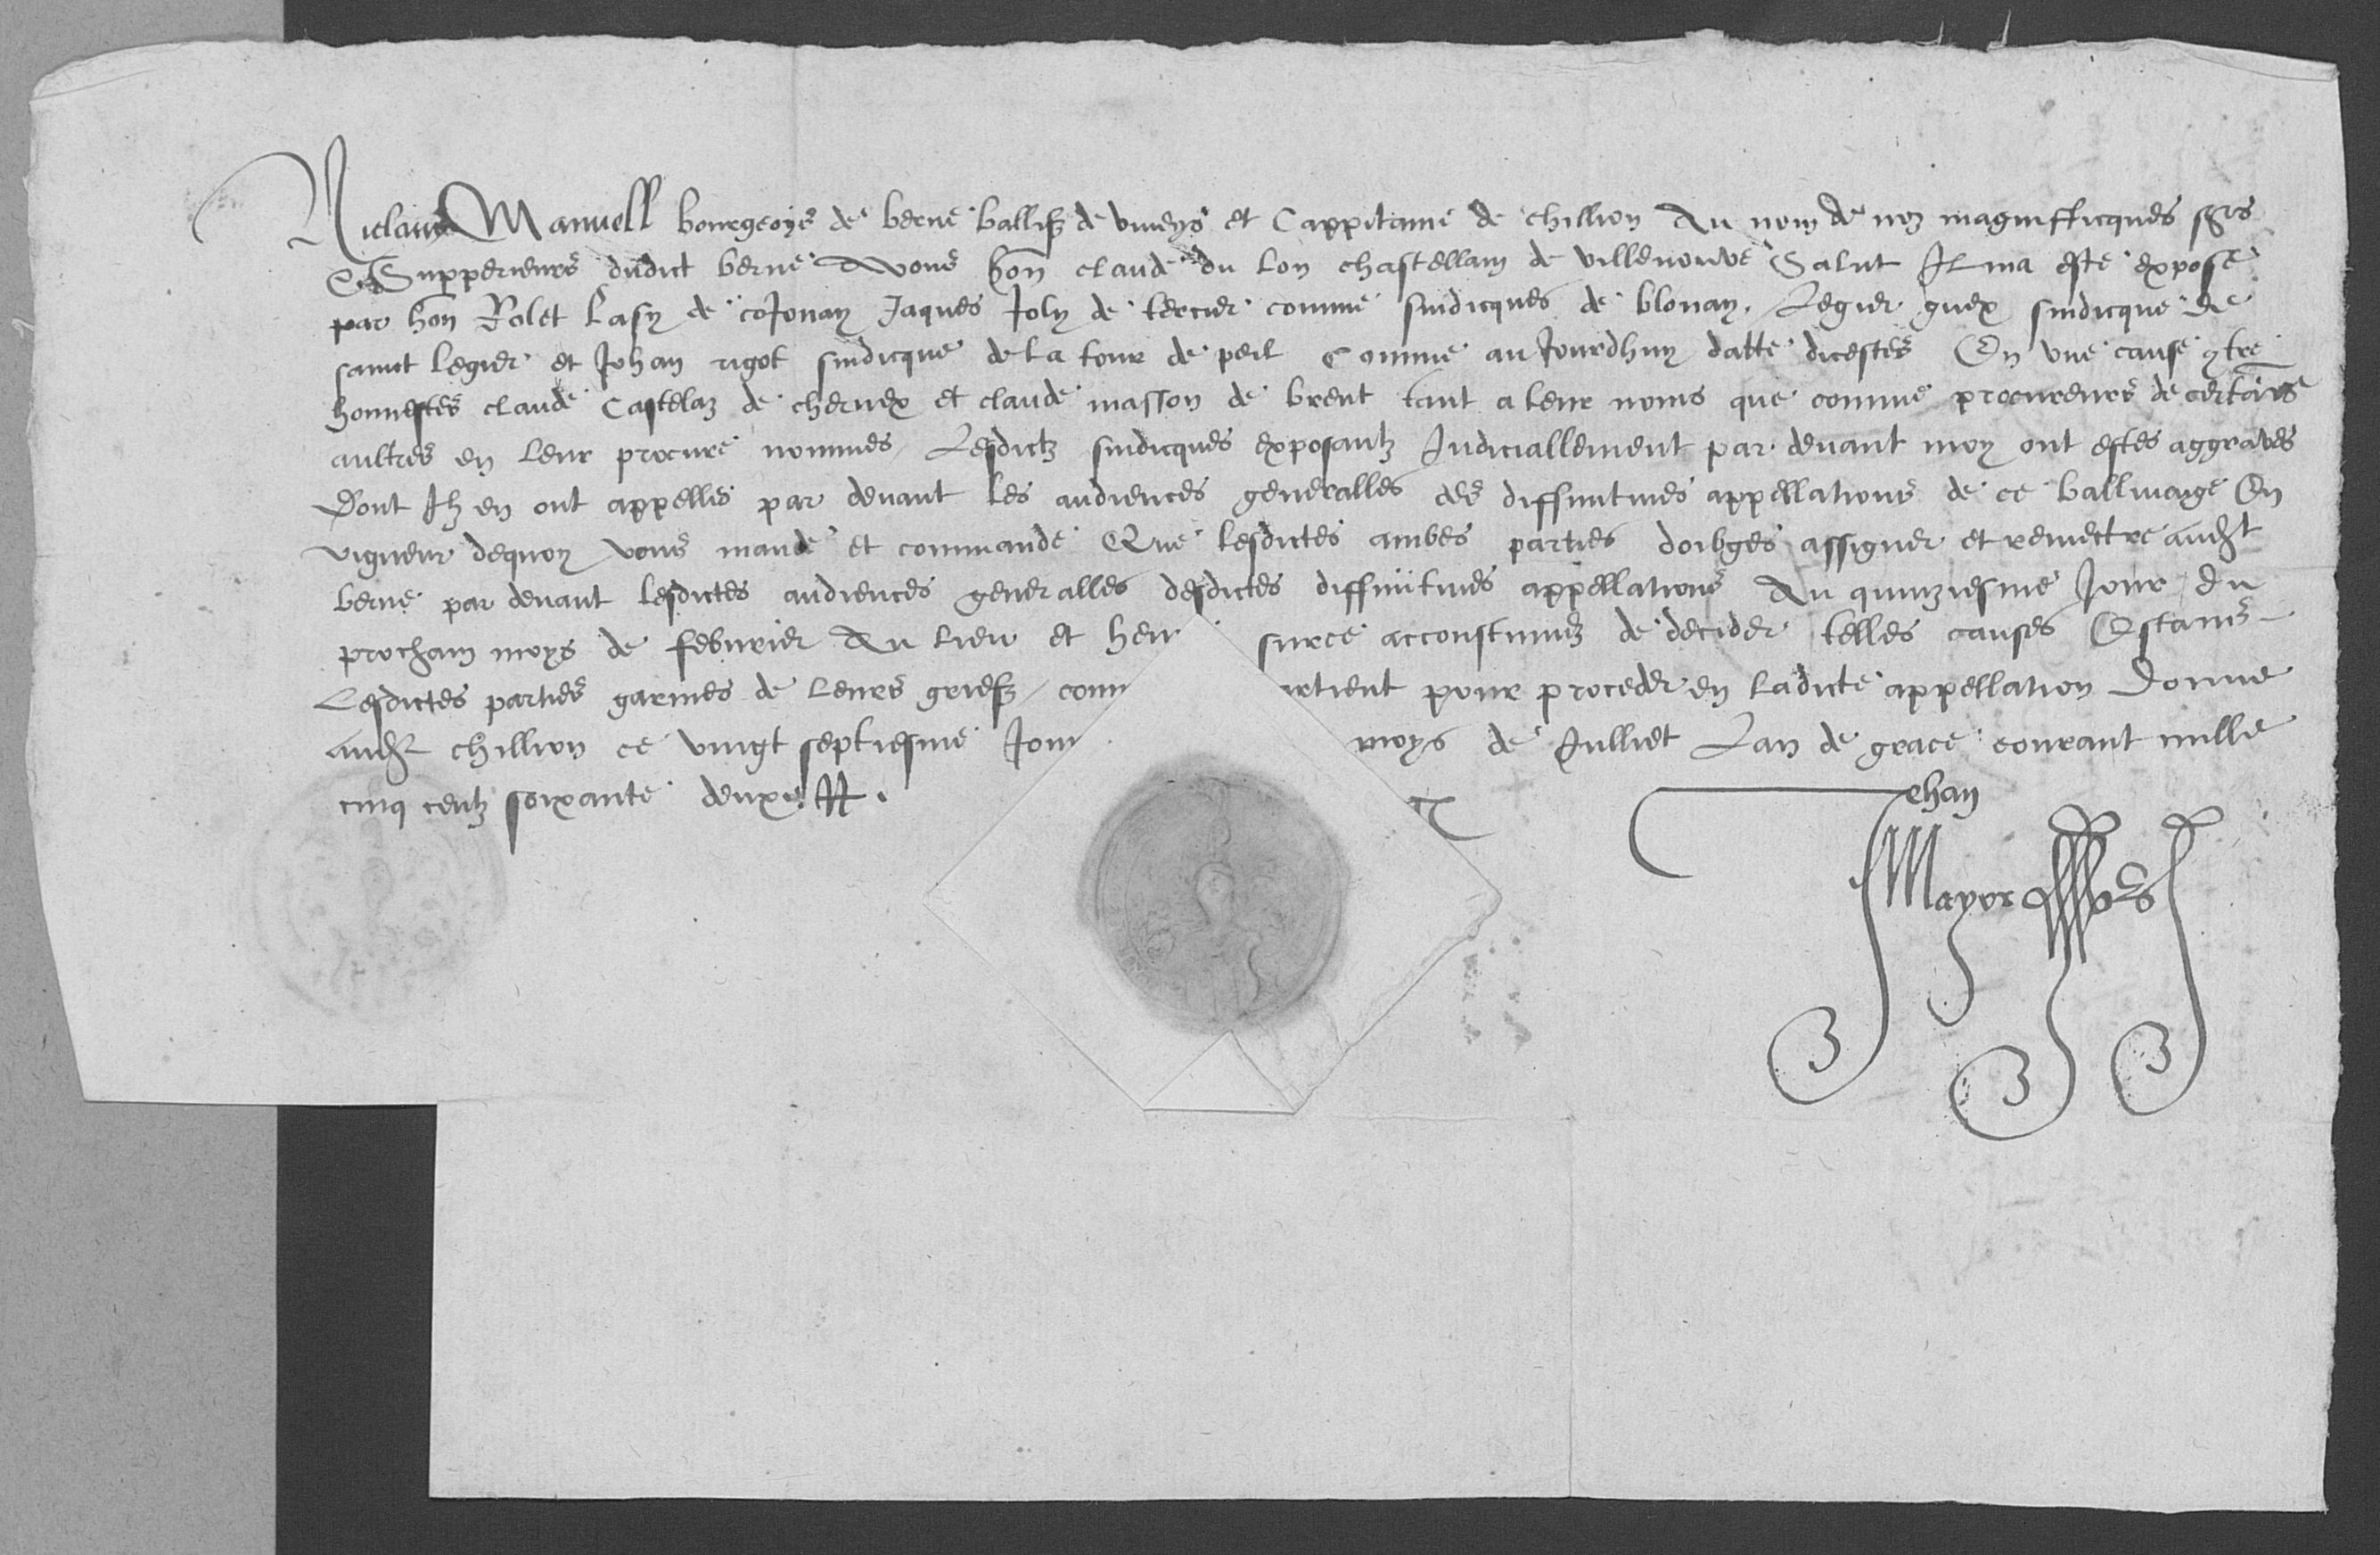 Niclaus Manuell bourgeoys de berne balliffz de viveys et Cappitaine de chillion Au nom de noz magniffiques sgrs
Et Supperieurs dudict berne A vous hon claude du lon chastellain de villenouve Salut Il ma este expose
par hon Rolet Lasy de Jaques Joly de tercier comme sindicques de blonay. Legier guex sindicque de
sainct legier et Johan rigot sindicque de la tour de peil Comme au Jourdhuy datte dicestes En une cause ctre
honnestes claude Castelaz de chernex et claude masson de brent tant a leur noms que comme procureurs de certains
aultres en leur procure nommes Lesdictz sindicques exposantz Judiciallement par devant moy ont estes aggraves
Dont Ilz en ont appelles par devant les audiences generalles des diffinitives appellations de ce ballivaige En
vigueur dequoy vous mande et commande Que lesdictes ambes parties doibges assigner et remectre audt
berne par devant lesdictes audiences generalles desdictes diffinitives appellations Au quinziesme Jour du
prochain moys de febvrier Au lieu et heu surce accoustumez de decider telles causes Estans
Lesdictes parties garnies de leurs griefz / com rtient pour proceder en ladicte appellation Donne
audt chillion ce vingt septiesme Jou moys de Julliet Lan de grace courant mille
cinq centz soixante deux
Jehan
Mayor